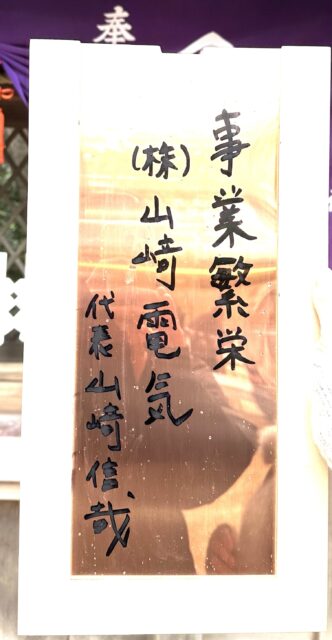 奉
事業繁栄
(株)山崎電気
代表山崎信哉